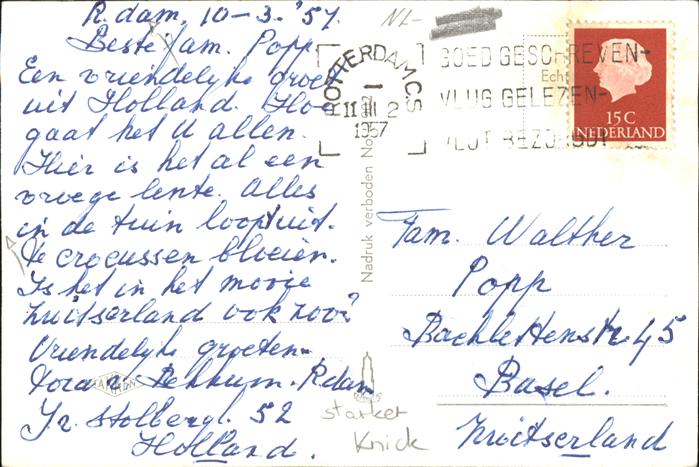 R.dam, 10-3-'57.
Beste Fam. Popp
Een vriendelijke groet
uit Holland. Hoe
gaat het U allen.
Hier is het al een
vroege lente. Alles
in de tuin loopt uit.
De crocussen bloeien.
Is het in het mooie
Zwitserland ook zoo?
Vriendelijke groeten
Bekkum. R.dam
Stolbergl. 52
Holland.
NL-
ROTTERDAM CS
11 III 2
1957
GOED GESCHREVEN-
VLUG GELEZEN-
VLOT BEZORGD!
Echt
15 C
NEDERLAND
Nadruk verboden No.
Fam. Walther
Popp
Bachlettenstr. 45
Basel.
Zwitserland
starker
Knick